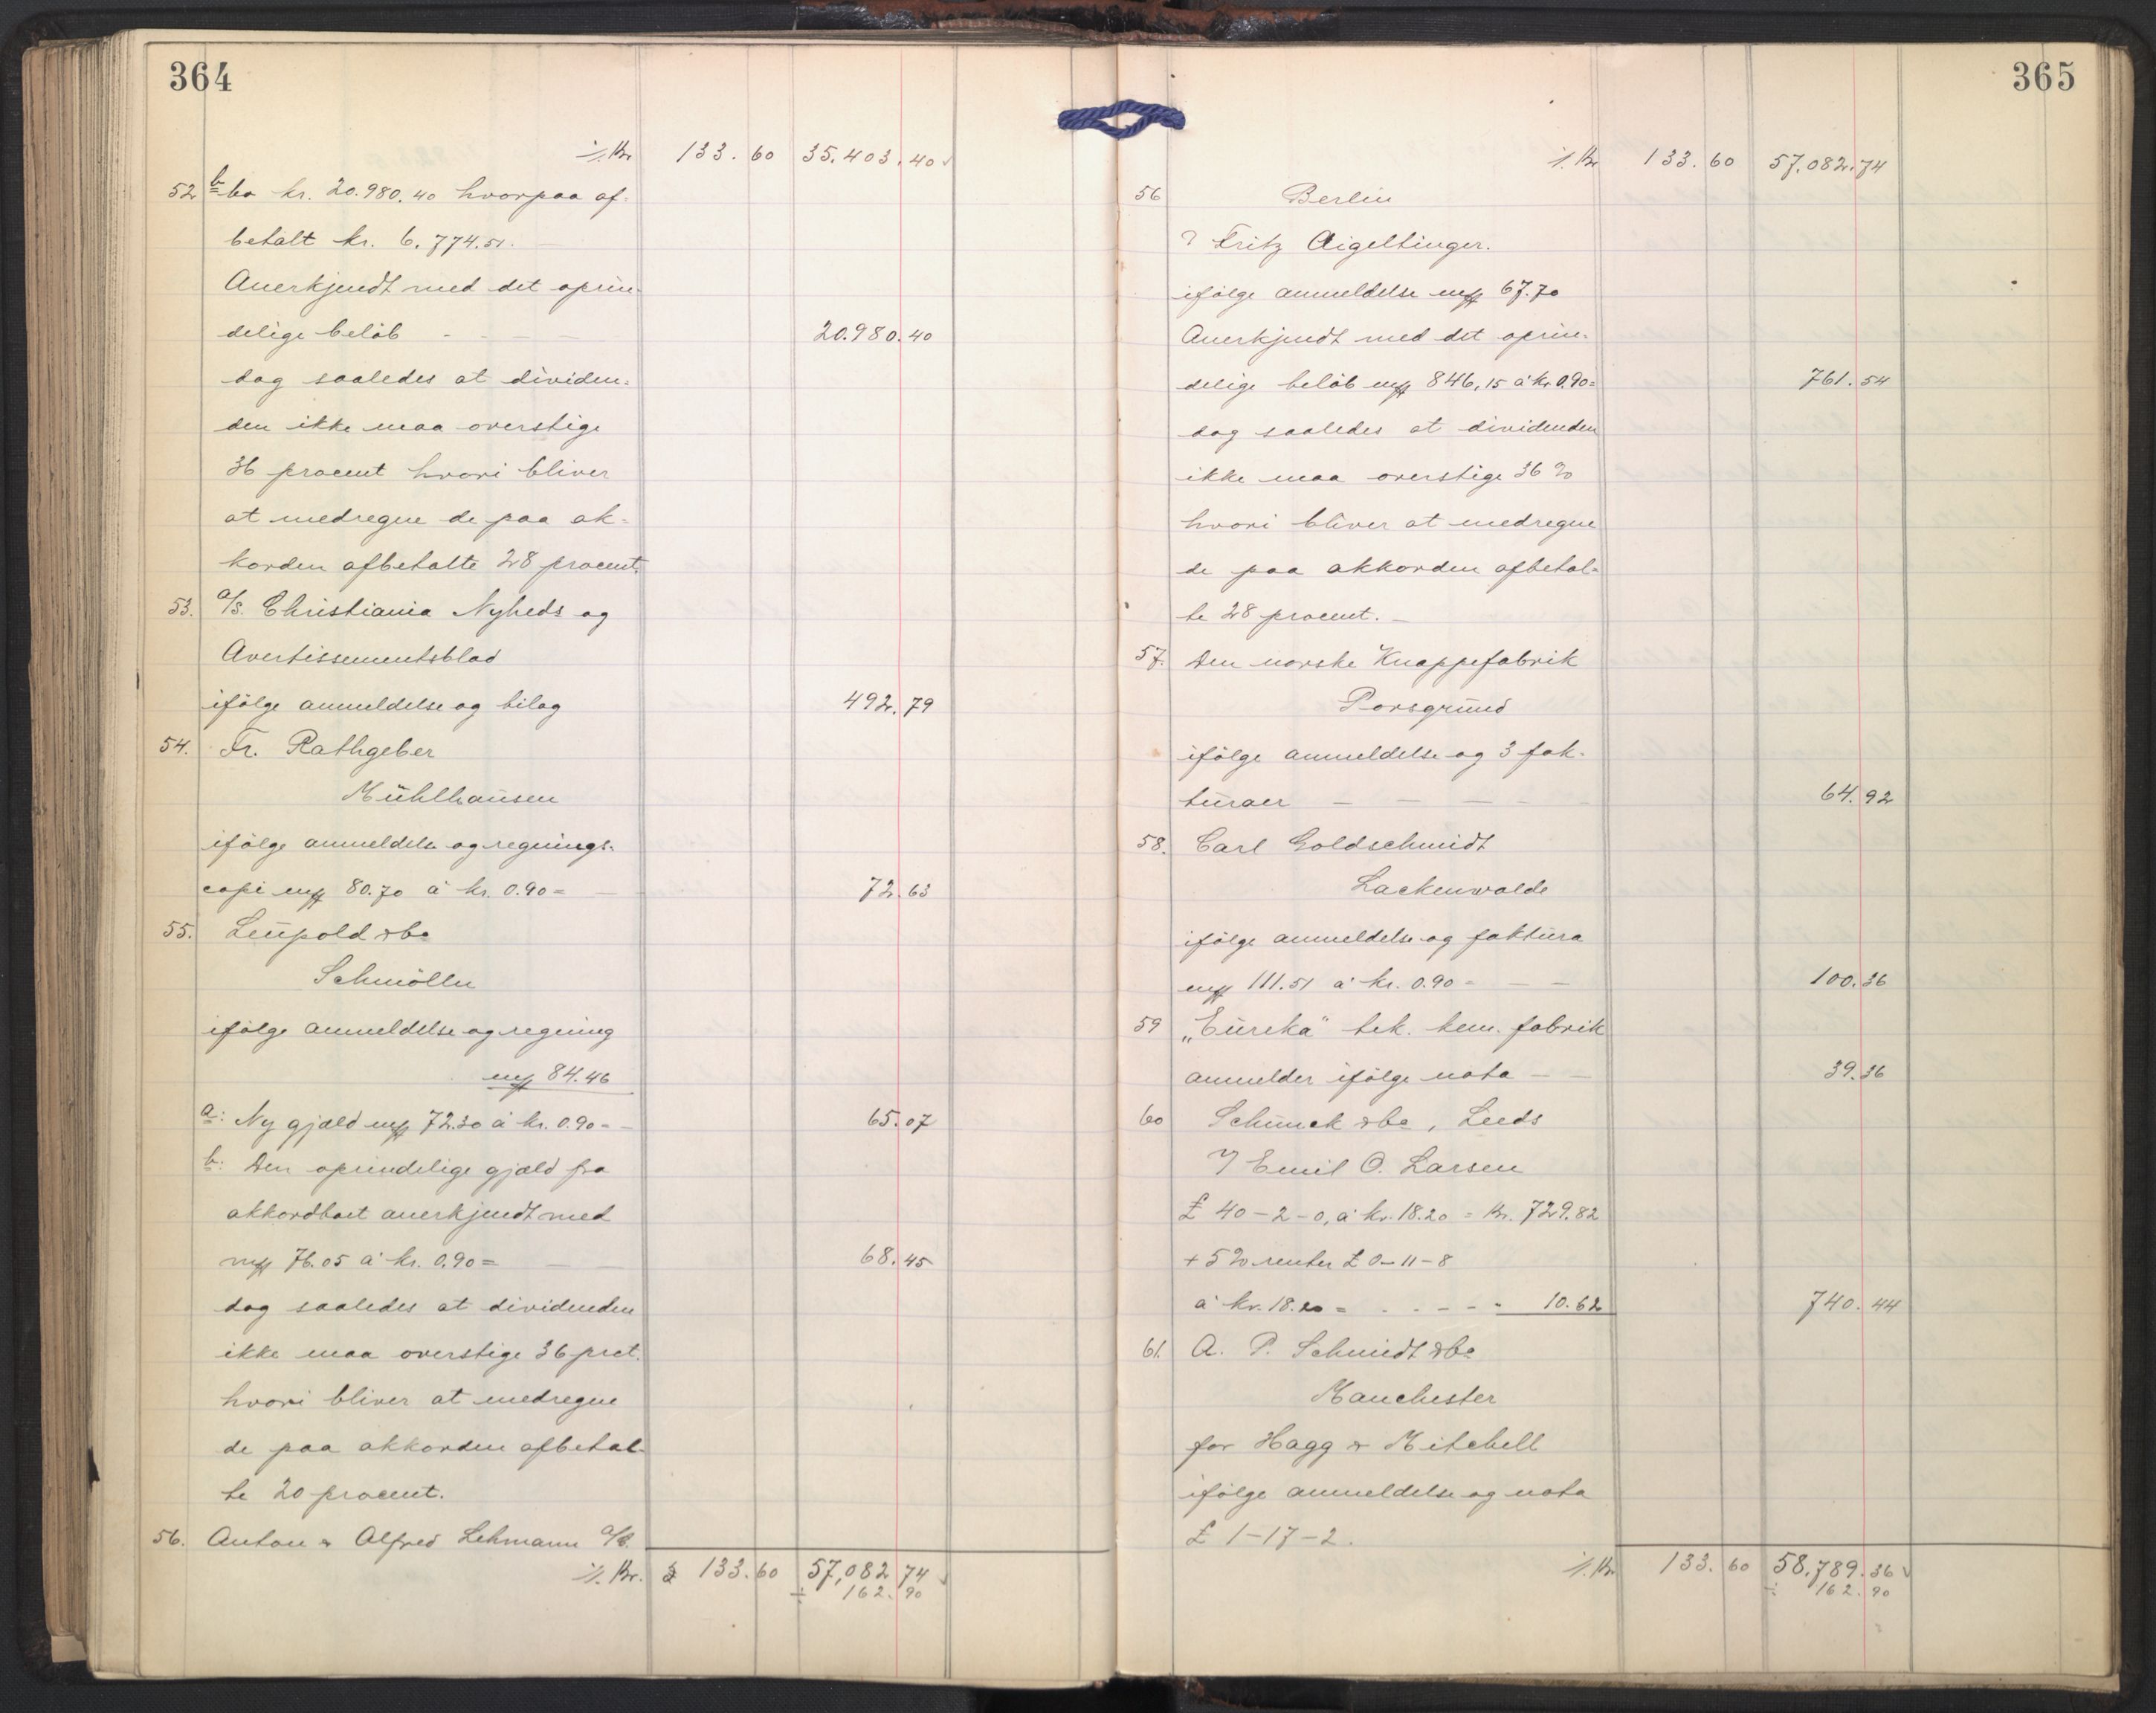 364
⁒ Kr 133.60 35.403.40
52 b bo kr. 20.980.40 hvorpaa af-
betalt kr. 6.774.51.
Anerkjendt med det oprin-
delige beløb - - - 20.980.40
dog saaledes at dividen-
den ikke maa overstige
36 procent hvori bliver
at medregne de paa ak-
korden afbetalte 28 procent.
53. A/S. Christiania Nyheds og
Avertissementsblad
ifølge anmeldelse og bilag 492.79
54. Fr. Rathgeber
Mühlhausen
ifølge anmeldelse og regnings-
copi mk 80.70 à kr. 0.90 = 72.63
55. Leupold & Co
Schmölln
ifølge anmeldelse og regning
mk 84.46
a: Ny gjæld mk 72.30 à kr. 0.90 = 65.07
b: Den oprindelige gjæld fra
akkordboet anerkjendt med
mk 76.05 à kr. 0.90 = 68.45
dog saaledes at dividenden
ikke maa overstige 36 prct.
hvori bliver at medregne
de paa akkorden afbetal-
te 20 procent.
56. Anton & Alfred Lehmann A/G.
⁒ Kr. 133.60 57,082 74
÷ 162.90
365
⁒ Kr 133.60 57,082.74
56 Berlin
v/ Fritz Aigeltinger.
ifølge anmeldelse mk 67.70
Anerkjendt med det oprin-
delige beløb mk 846,15 à kr. 0.90 = 761.54
dog saaledes at dividenden
ikke maa overstige 36 %
hvori bliver at medregne
de paa akkorden afbetal-
te 28 procent. -
57. Den norske Knappefabrik
Porsgrund
ifølge anmeldelse og 3 fak-
turaer - - - - 64.92
58. Carl Goldschmidt
Luckenwalde
ifølge anmeldelse og faktura
mk 111.51 à kr. 0.90 = - - 100.36
59 „Eureka" tek. kem. fabrik
anmelder ifølge nota - - 39.36
60 Schunck & Co, Leeds
v/ Emil O. Larsen
£ 40-2-0, à kr. 18.20 = Kr. 729.82
+ 5 % renter £ 0-11-8
à kr. 18.20 = - - - - 10.62 740.44
61. A. P. Schmidt & Co
Manchester
for Hagg & Mitchell
ifølge anmeldelse og nota
£ 1-17-2.
⁒ Kr 133.60 58,789.36
÷ 162.90